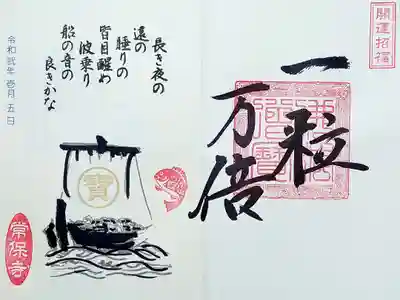 開運招福
一粒
万倍
長き夜の
遠の
睡りの
皆目醒め
波乗り
船の音の
良きかな
令和弐年壱月五日
寶
常保寺